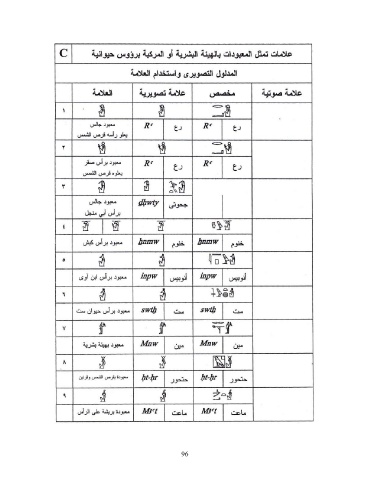 علامات تمثل المعبودات بالهيئة البشرية أو المركبة برؤوس حيوانية C
المدلول التصويرى واستخدام العلامة
العلامة علامة تصويرية مخصص علامة صوتية
١
معبود جالس يعلو رأسه قرص الشمس Rꜥ رع Rꜥ رع
٢
معبود برأس صقر يعلوه قرص الشمس Rꜥ رع Rꜥ رع
٣
معبود جالس برأس أبي منجل ḏḥwty جحوتى
٤
معبود برأس كبش ẖnmw خنوم ẖnmw خنوم
٥
معبود برأس ابن آوى inpw أنوبيس inpw أنوبيس
٦
معبود برأس حيوان ست swtḫ ست swtḫ ست
٧
معبود بهيئة بشرية Mnw مين Mnw مين
٨
معبودة بقرص الشمس وقرنين ḥt-ḥr حتحور ḥt-ḥr حتحور
٩
معبودة بريشة على الرأس Mꜣꜥt ماعت Mꜣꜥt ماعت
96